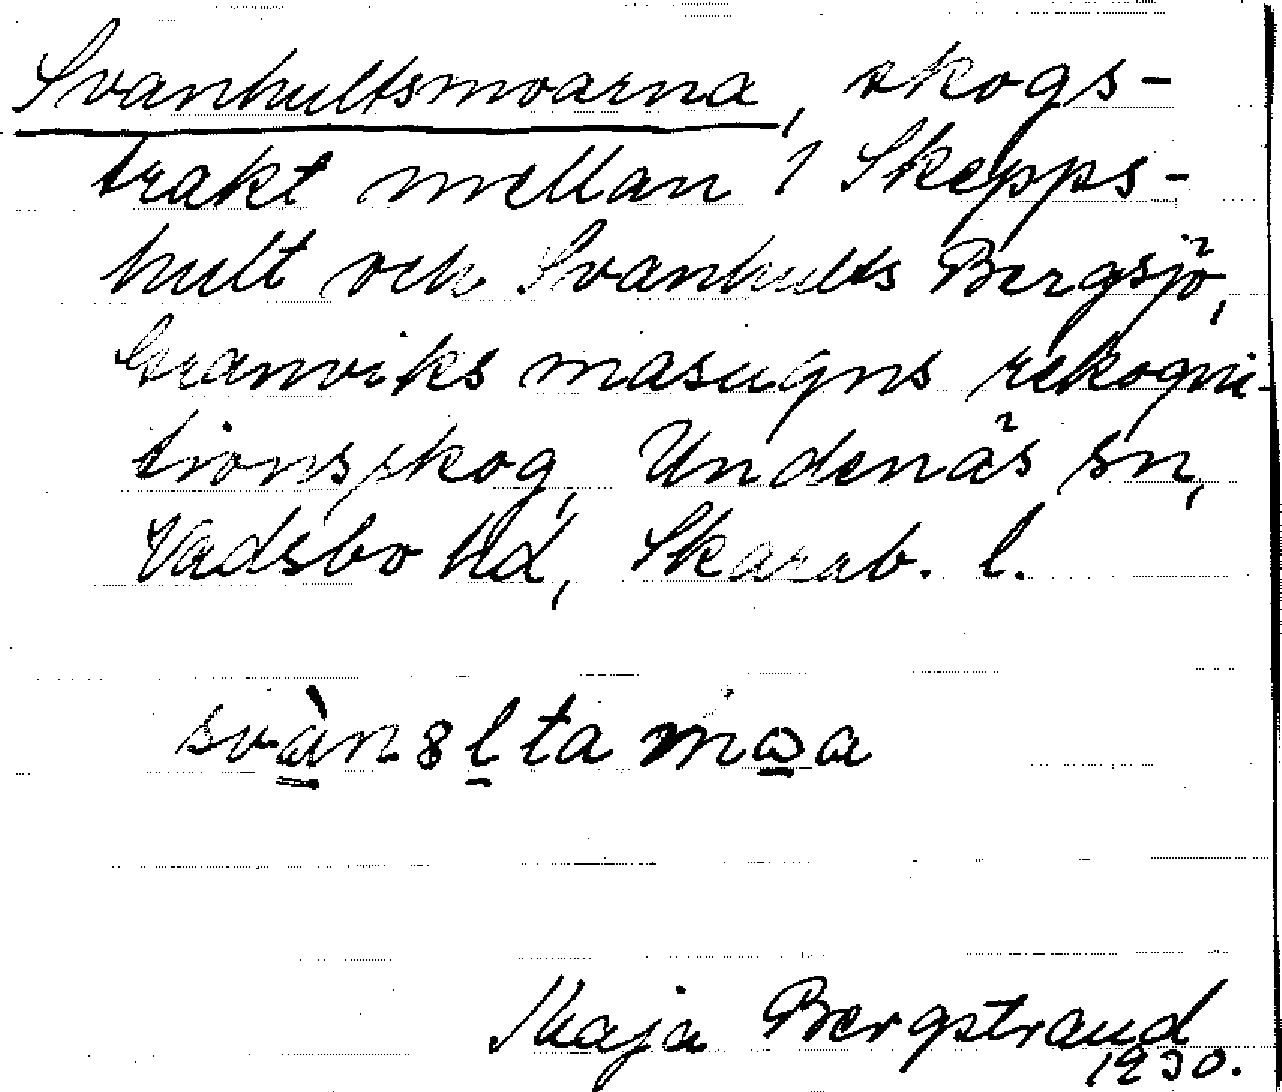 Svanhultsmoarna, skogs-
trakt mellan 1 Skepps-
hult och Svanhults Bergsjö,
Granviks masugns rekogni-
tionsskog, Undenäs sn,
Vadsbo hd, Skarab. l.
svàn8lta mωa
Maja Bergstrand
1930.